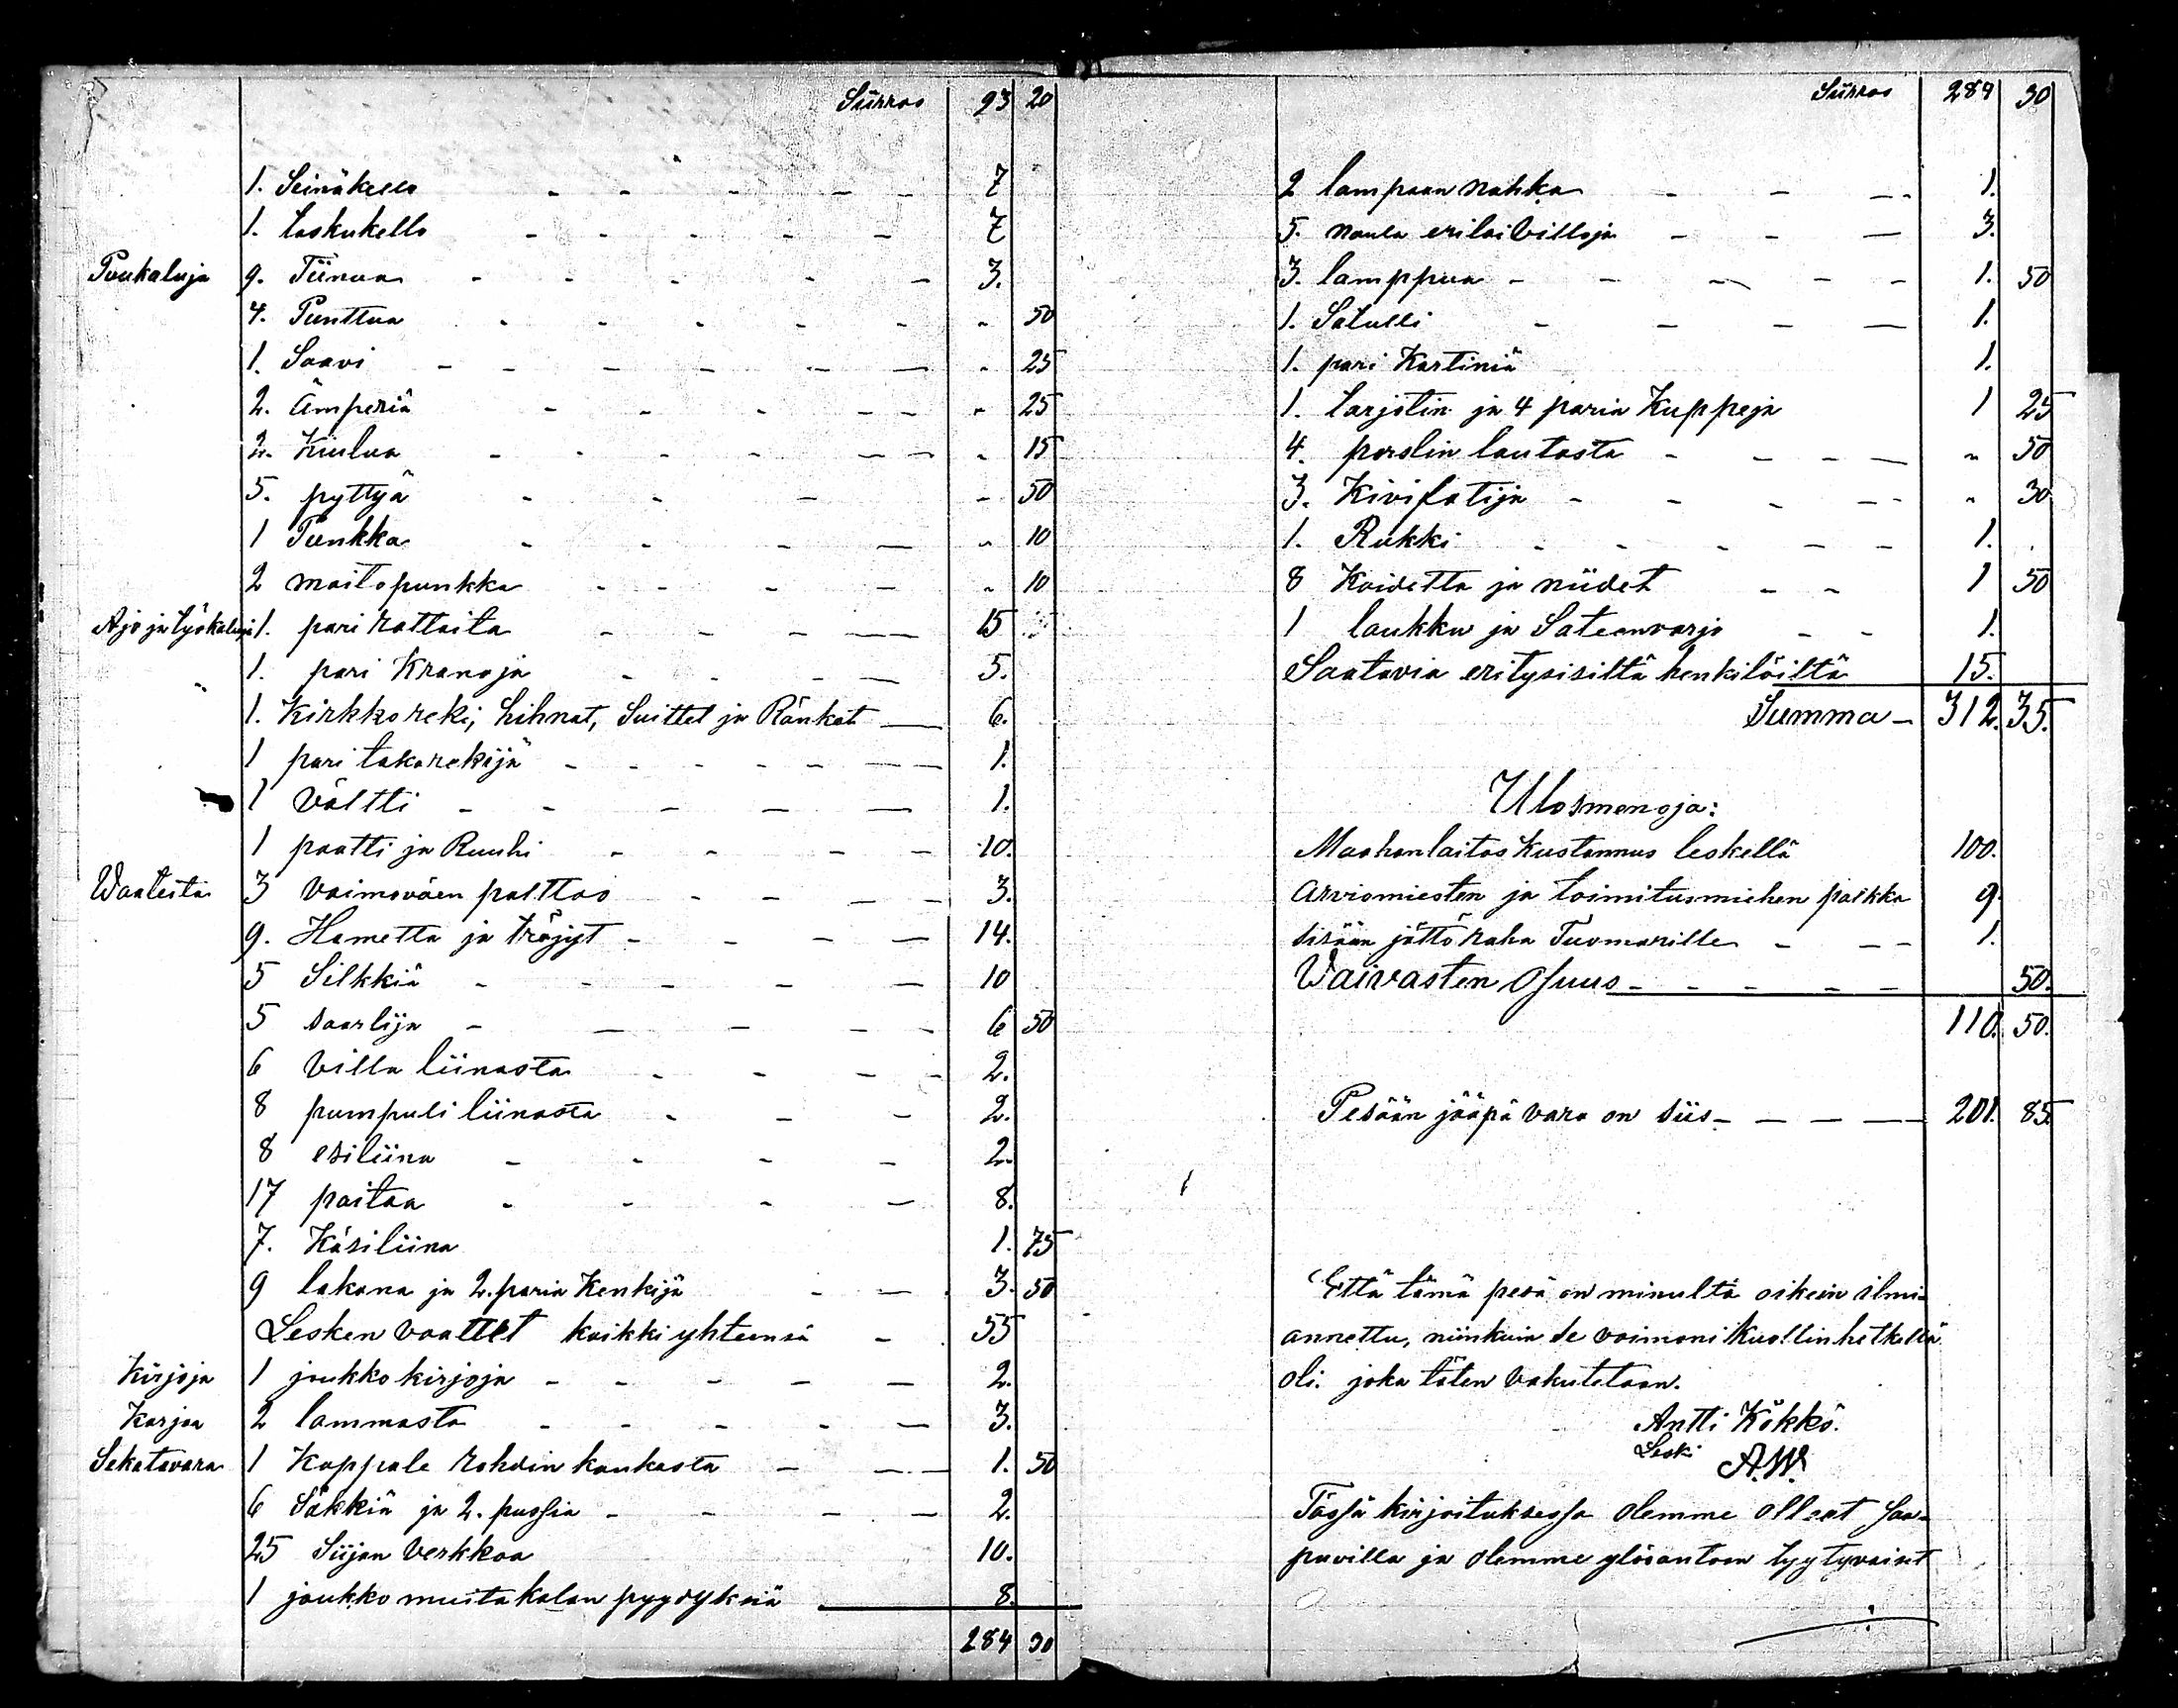 Siirros 93 20
1. Seinäkello 7
1. taskukello 7
Puukaluja 9. Tiinua 3.
4. Punttua " 50
1. Saavi " 25
2. ämperiä " 25
2. Kiulua " 15
5. pyttyä " 50
1 Punkka " 10
2 maitopunkka " 10
Ajo ja työkaluja 1. pari rattaita 15
" 1. pari Kranoja 5.
1. Kirkkoreki, hihnat, Suittet ja Ränket 6.
1 pari takorekijä 1.
1 Vältti 1.
1 paatti ja Ruuhi 10.
Waateita 3 vaimoväen palttoo 3.
9. Hametta ja tröjyt 14.
5 Silkkiä 10
5 saarlija 6 50
6 villa liinasta 2.
8 pumpuli liinasta 2.
8 esiliina 2.
17 paitaa 8.
7. Käsiliina 1. 75
9 lakana ja 2. paria Kenkijä 3. 50
Lesken vaattet kaikki yhteensä 55
Kirjoja 1 joukko kirjoja 2.
Karjaa 2 lammasta 3.
Sekatavara 1 Kappale rohdin kankasta 1. 50
6 Säkkiä ja 2. pussia 2.
25 Siijan verkkoa 10.
1 joukko muita kalan pyydyksiä 8.
284 30
Siirros 284 30
2 lampaan nahka 1.
5. naula erilai villoja 3.
3. lamppua 1. 50
1. Satulli 1.
1. pari Kartiniä 1.
1. tarjotin ja 4 paria Kuppeja 1 25
4. porslin lautasta " 50
3. Kivifatija " 30
1. Rukki 1.
8 Kaidetta ja niidet 1 50
1 laukku ja Sateenvarjo 1.
Saatavia eritysisiltä henkilöiltä 15.
Summa 312. 35.
Ulosmenoja:
Maahanlaitos Kustannus leskellä 100.
arviomiesten ja toimitusmiehen palkka 9.
sisään jättö raha Tuomarille 1.
Vaivasten Osuus 50.
110. 50.
Pesään jääpä vara on siis 201. 85.
Että tämä pesä on minulta oikein ilmi-
annettu, niinkuin se vaimoni Kuollinhetkellä
oli. joka täten vakutetaan.
Antti Kökkö.
Leski A.W.
Tässä kirjoituksessa olemme olleet saa-
puvilla ja olemme ylösantoon tyytyvaiset